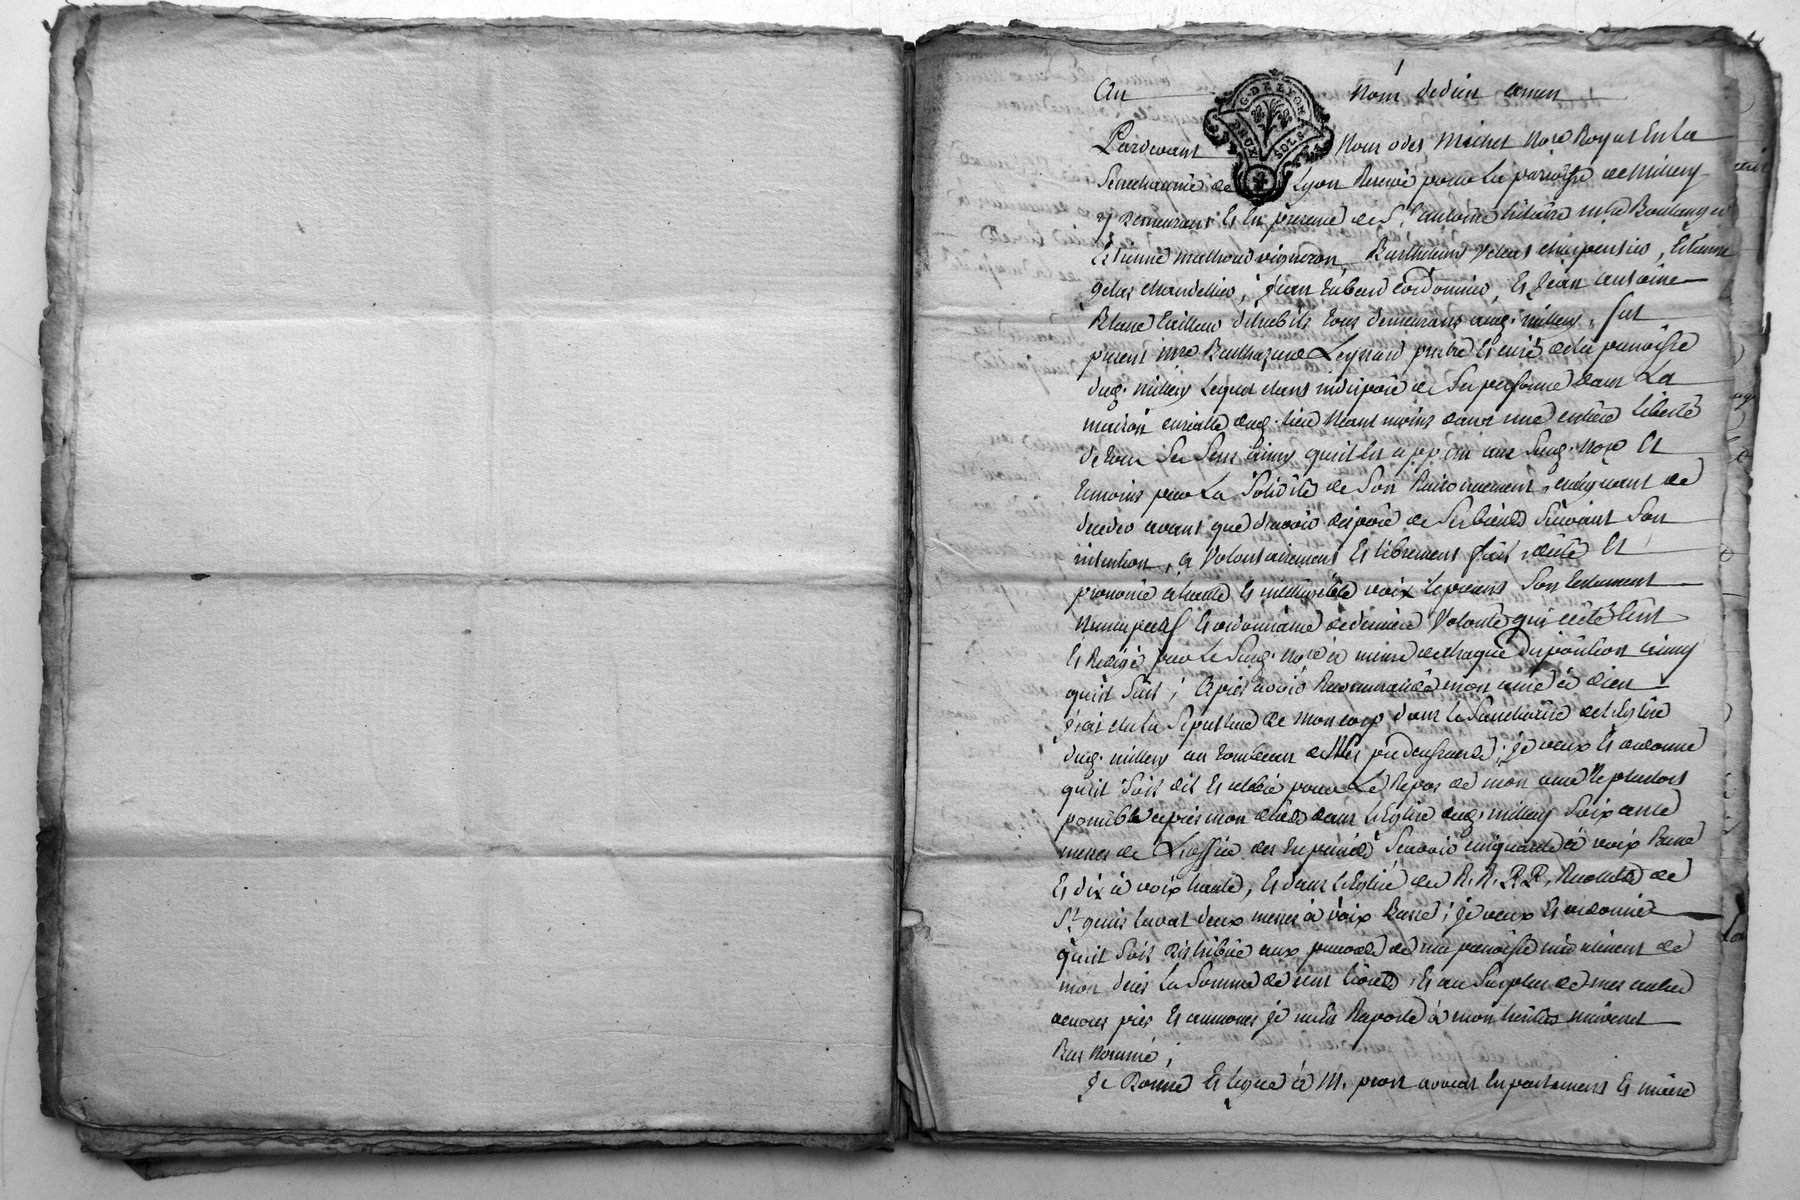 Au nom de dieu amen
G. DE LYON
DEUX SOLS
Pardevant Nous odet Michel No.re Royal En La
Senechaussée de Lyon Reservé pour La parroisse de millery
y demeurant Et En presence de S.r antoine hilaire m.tre Boulanger
Etienne mathoud vigneron, Barthelemy Velus charpentier, Etienne
gelas chandellier, Jean Eubard cordonnier, Et Jean antoine
Blanc tailleur d'habits tous demeurans aud. millery, fut
present m.re Balthazard Leynard prêtre Et curé de la parroisse
dud. millery Lequel etant indisposé de Sa personne dans La
maison curialle dud. lieu Neant moins dans une entière Liberté
de tous Ses Sens ainsy qu'il Est apparu aux Susd. No.re Et
temoins par La Solidité de Son Raisonnement, craignant de
deceder avant que d'avoir disposé de Ses biens Suivant Son
intention, a Volontairement Et librement fait, dicté Et
prononcé à haute Et intelligible voix Le present Son testament
Nuncupatif Et ordonnance de derniere Volonté qui a été Ecrit
Et Redigé par Le Susd. No.re à mesure de chaque disposition ainsy
qu'il Suit; Après avoir Recommandé mon ame à dieu
J'ai elu la Sepulture de mon corp dans le Sanctuaire de l'Eglise
dud. millery au tombeau de Mes predecesseurs; je veux Et ordonne
qu'il Soit dit Et celebré pour Le Repos de mon ame Le plutost
possible après mon décès dans L'Eglise dud. millery Soixante
messes de L'office des trepassés Sçavoir cinquante à voix Basse
Et dix à voix haute, Et dans L'Eglise des R.R. P.P. Recollets de
S.t genis Laval deux messes à voix Basse; je veux Et ordonne
qu'il Soit distribué aux pauvres de ma parroisse au moment de
mon deces La Somme de cent livres, Et au Surplus de mes autres
œuvres pies Et aumones je m'En Raporte à mon heritier universel
Bas Nommé;
Je Donne Et legue à M. avocat En parlement Et